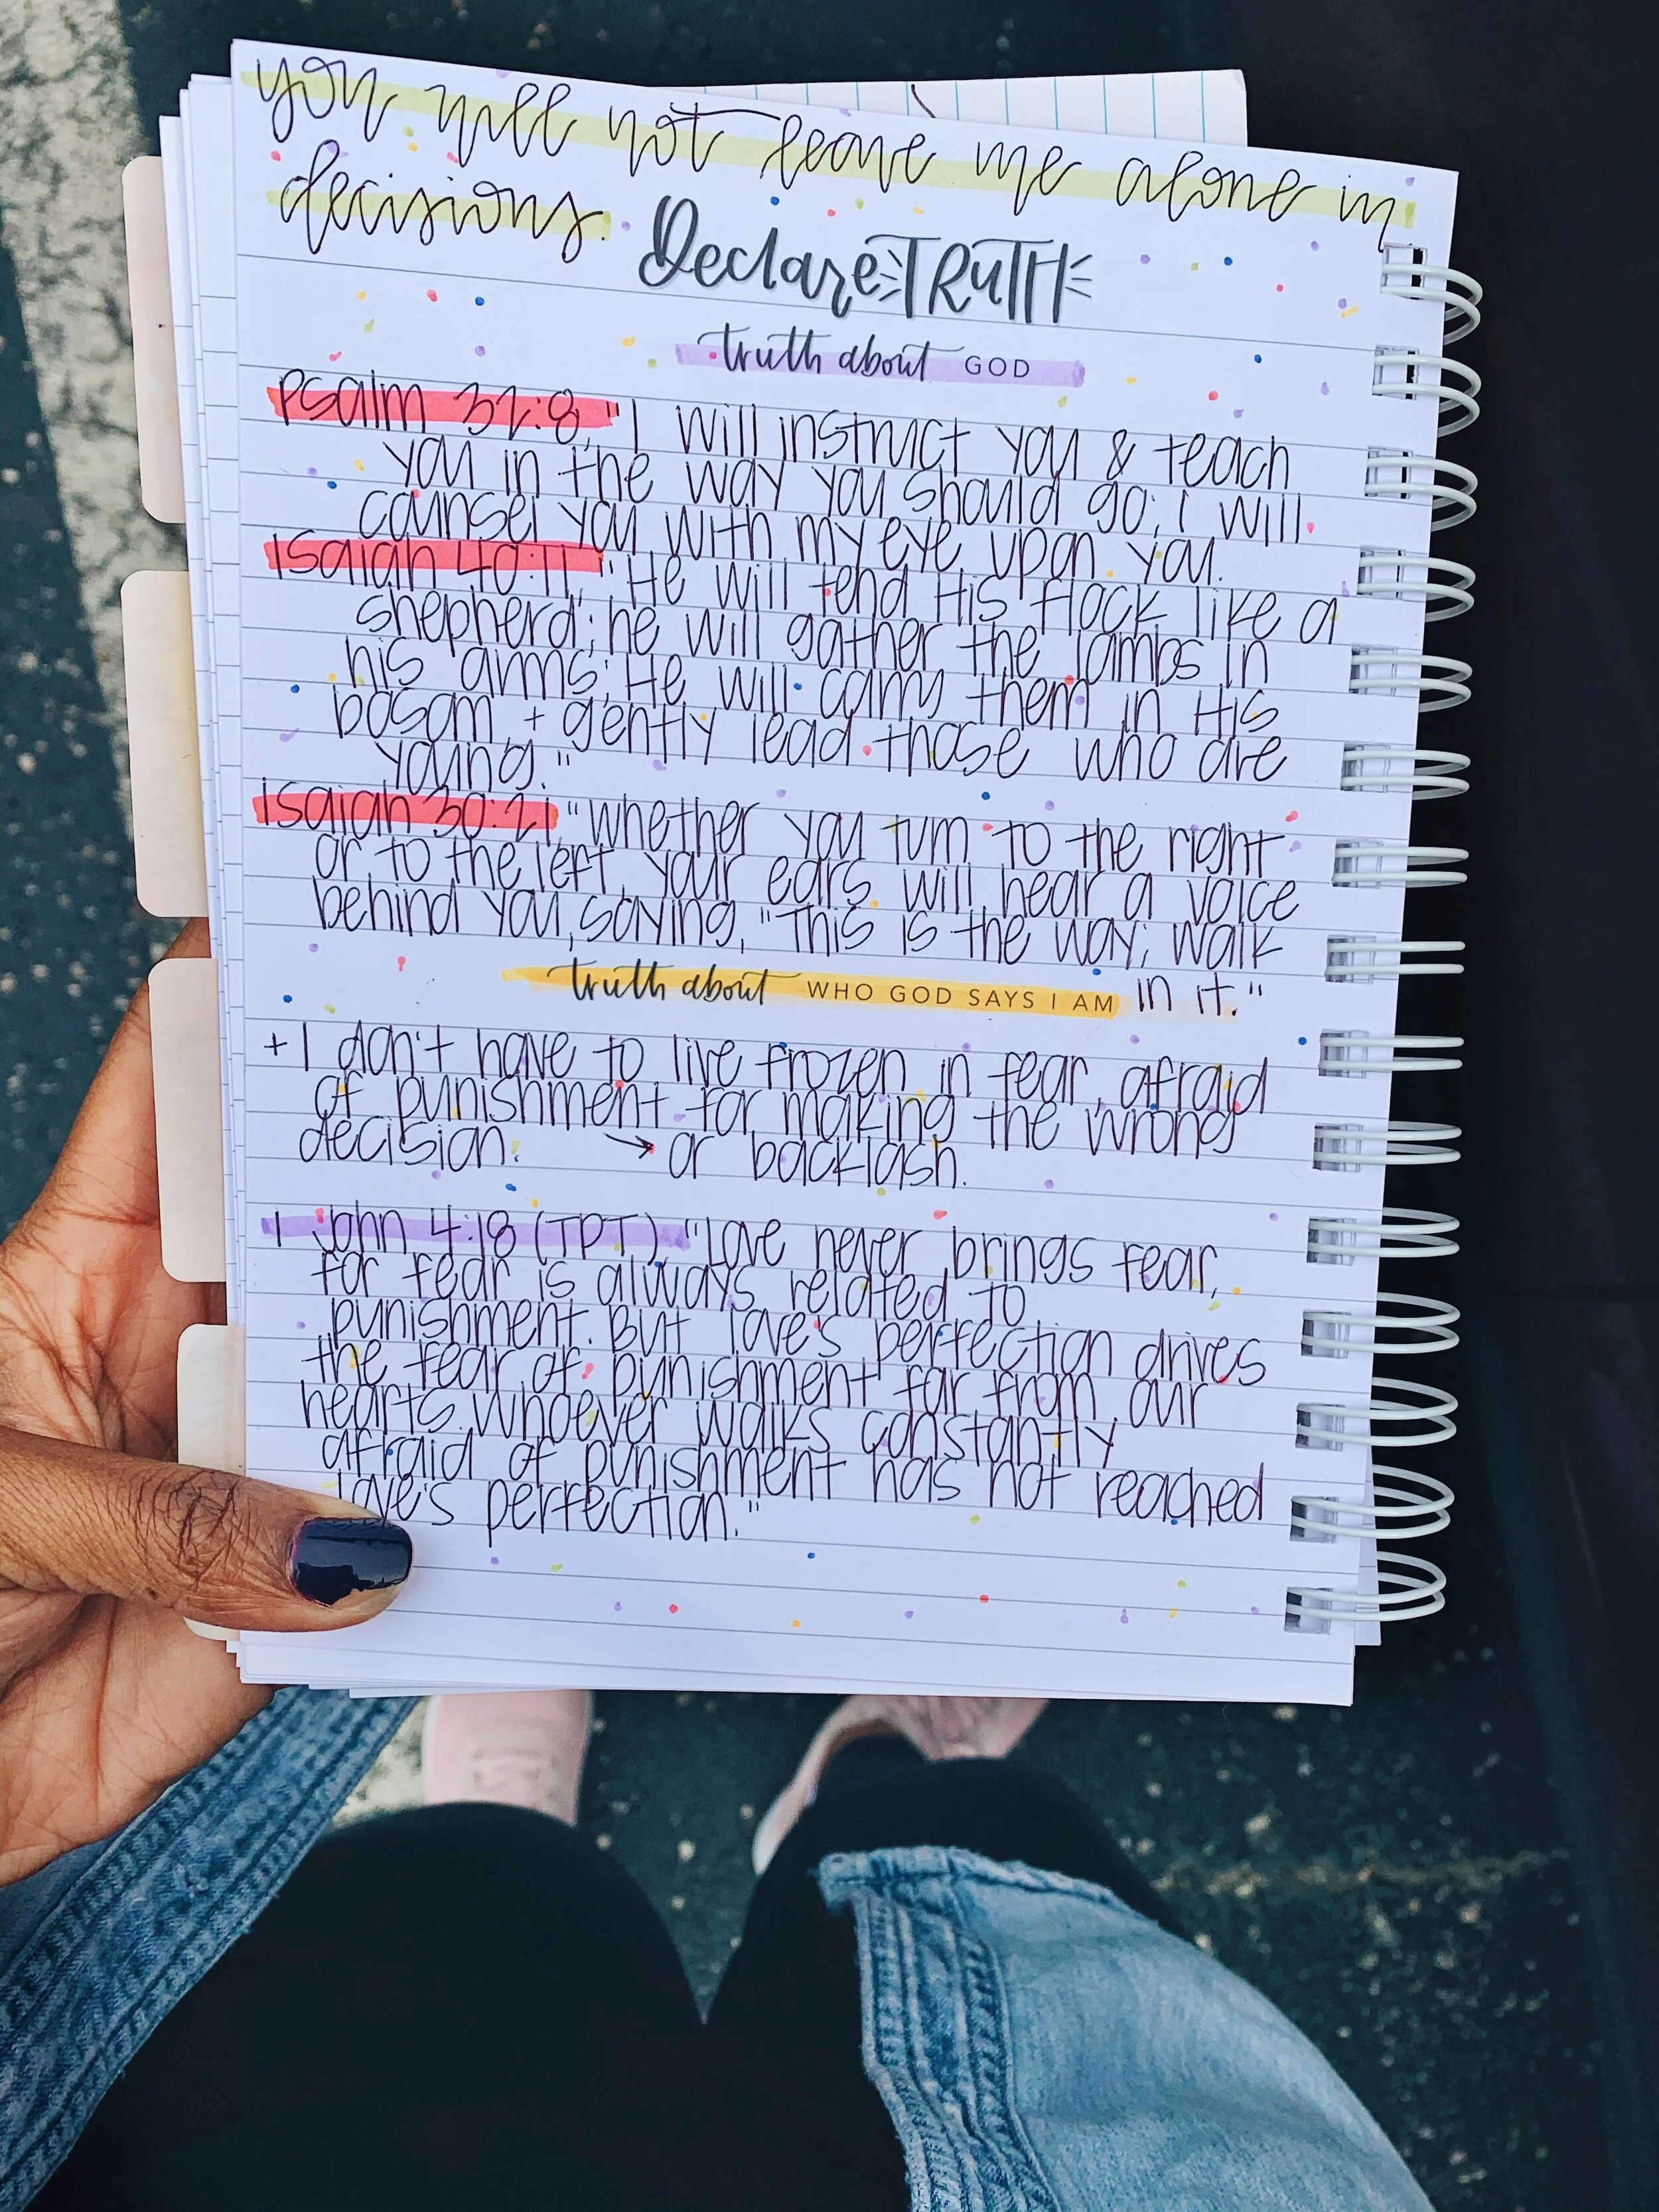 you will not leave me alone in
decisions.
Declare TRUTH
truth about GOD
Psalm 32:8, "I will instruct you & teach
you in the way you should go; i will
counsel you with my eye upon you.
isaiah 40:11, "He will tend His flock like a
shepherd; he will gather the lambs in
his arms; He will carry them in His
bosom, + gently lead those who are
young."
isaiah 30:21, "whether you turn to the right
or to the left, your ears will hear a voice
behind you, saying, "This is the way; walk
in it."
truth about WHO GOD SAYS I AM
+ I don't have to live frozen in fear, afraid
of punishment for making the wrong
decision. → or backlash.
1 John 4:18 (TPT), "Love never brings fear,
for fear is always related to
punishment. But love's perfection drives
the fear of punishment far from our
hearts. Whoever walks constantly
afraid of punishment has not reached
love's perfection."